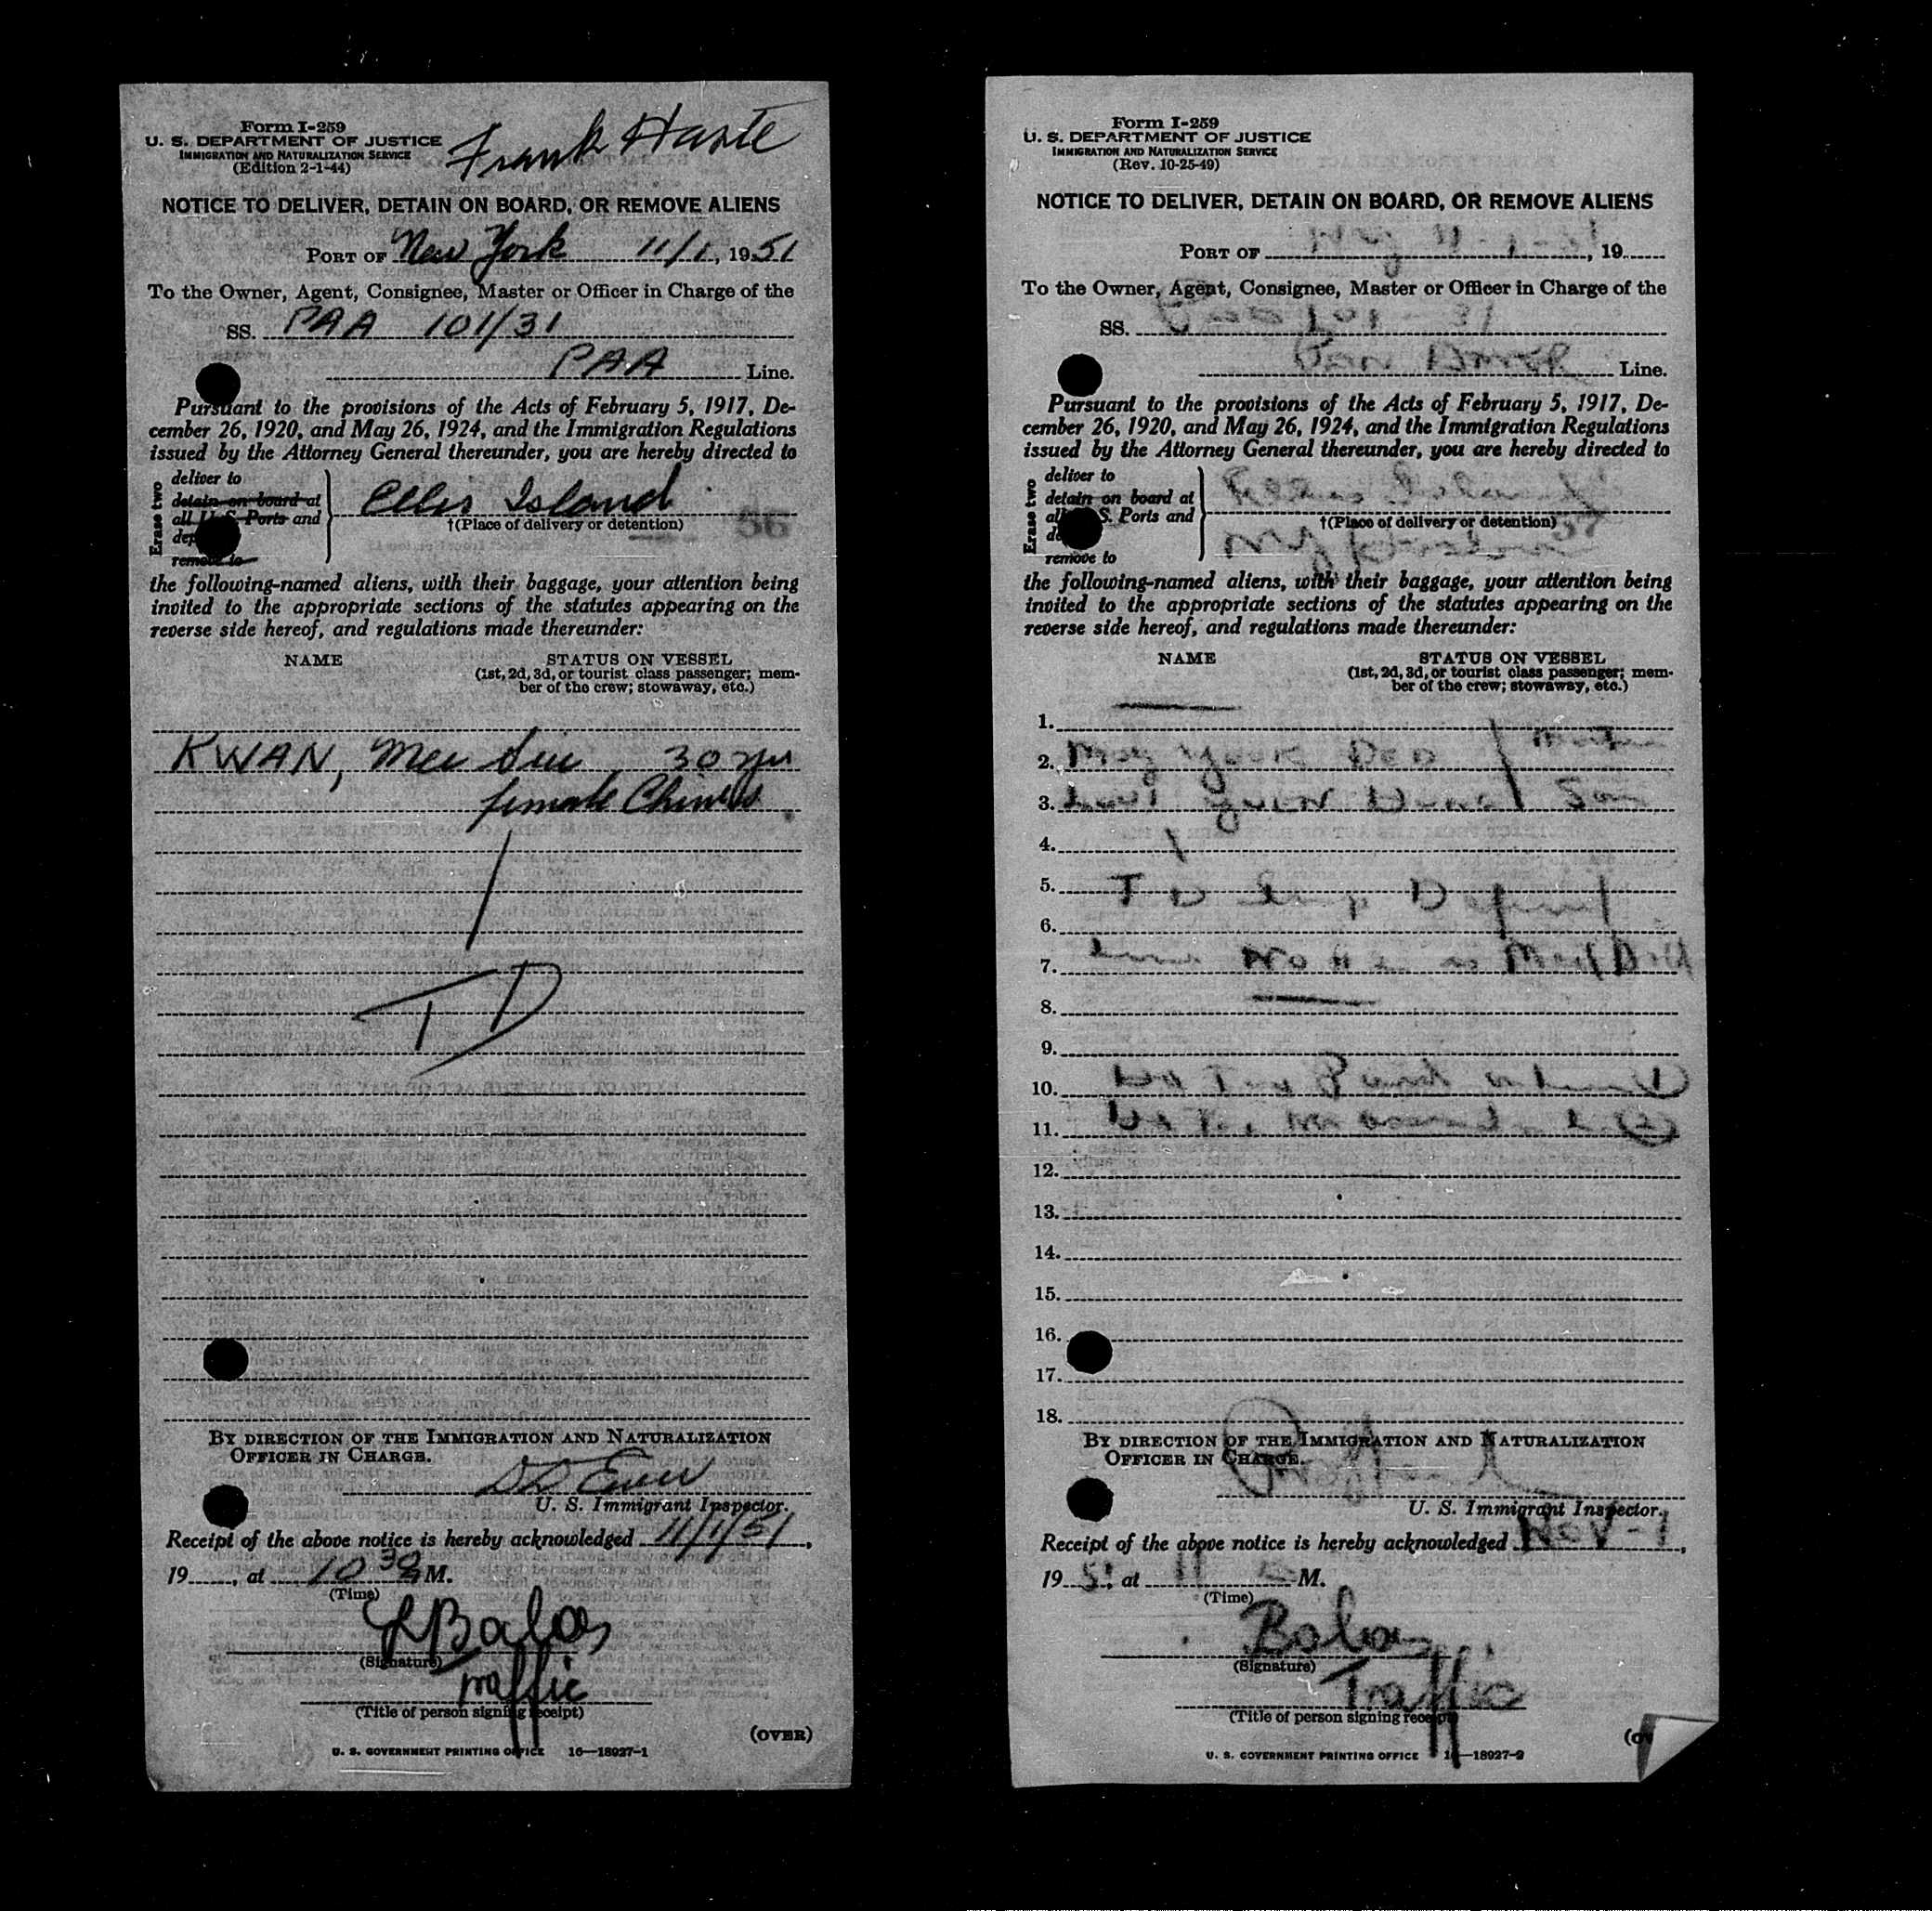 Form I-259
U. S. DEPARTMENT OF JUSTICE
IMMIGRATION AND NATURALIZATION SERVICE
(Edition 2-1-44)
Frank
NOTICE TO DELIVER, DETAIN ON BOARD, OR REMOVE ALIENS
PORT OF New York 11/1, 1951
To the Owner, Agent, Consignee, Master or Officer in Charge of the
SS. PAA 101/31
PAA Line.
Pursuant to the provisions of the Acts of February 5, 1917, De-
cember 26, 1920, and May 26, 1924, and the Immigration Regulations
issued by the Attorney General thereunder, you are hereby directed to
Erase two
deliver to
detain on board at
all U. S. Ports and
remove to
Ellis Island
†(Place of delivery or detention)
56
the following-named aliens, with their baggage, your attention being
invited to the appropriate sections of the statutes appearing on the
reverse side hereof, and regulations made thereunder:
NAME STATUS ON VESSEL
(1st, 2d, 3d, or tourist class passenger; mem-
ber of the crew; stowaway, etc.)
KWAN, Mee 30 yrs
female Chinese
TD
BY DIRECTION OF THE IMMIGRATION AND NATURALIZATION
OFFICER IN CHARGE.
U. S. Immigrant Inspector.
Receipt of the above notice is hereby acknowledged 11/1/51,
19, at 10 M.
(Time)
(Signature)
Traffic
(Title of person signing receipt)
(OVER)
U. S. GOVERNMENT PRINTING OFFICE 16—18927-1
Form I-259
U. S. DEPARTMENT OF JUSTICE
IMMIGRATION AND NATURALIZATION SERVICE
(Rev. 10-25-49)
NOTICE TO DELIVER, DETAIN ON BOARD, OR REMOVE ALIENS
PORT OF , 19
To the Owner, Agent, Consignee, Master or Officer in Charge of the
SS.
Pan Line.
Pursuant to the provisions of the Acts of February 5, 1917, De-
cember 26, 1920, and May 26, 1924, and the Immigration Regulations
issued by the Attorney General thereunder, you are hereby directed to
Erase two
deliver to
detain on board at
all U. S. Ports and
remove to
†(Place of delivery or detention)
57
the following-named aliens, with their baggage, your attention being
invited to the appropriate sections of the statutes appearing on the
reverse side hereof, and regulations made thereunder:
NAME STATUS ON VESSEL
(1st, 2d, 3d, or tourist class passenger; mem-
ber of the crew; stowaway, etc.)
1.
2.
3. Son
4.
5.
6.
7.
8.
9.
10.
11.
12.
13.
14.
15.
16.
17.
18.
BY DIRECTION OF THE IMMIGRATION AND NATURALIZATION
OFFICER IN CHARGE.
U. S. Immigrant Inspector.
Receipt of the above notice is hereby acknowledged Nov-1,
1951, at 11 M.
(Time)
(Signature)
Traffic
(Title of person signing receipt)
U. S. GOVERNMENT PRINTING OFFICE 16—18927-2